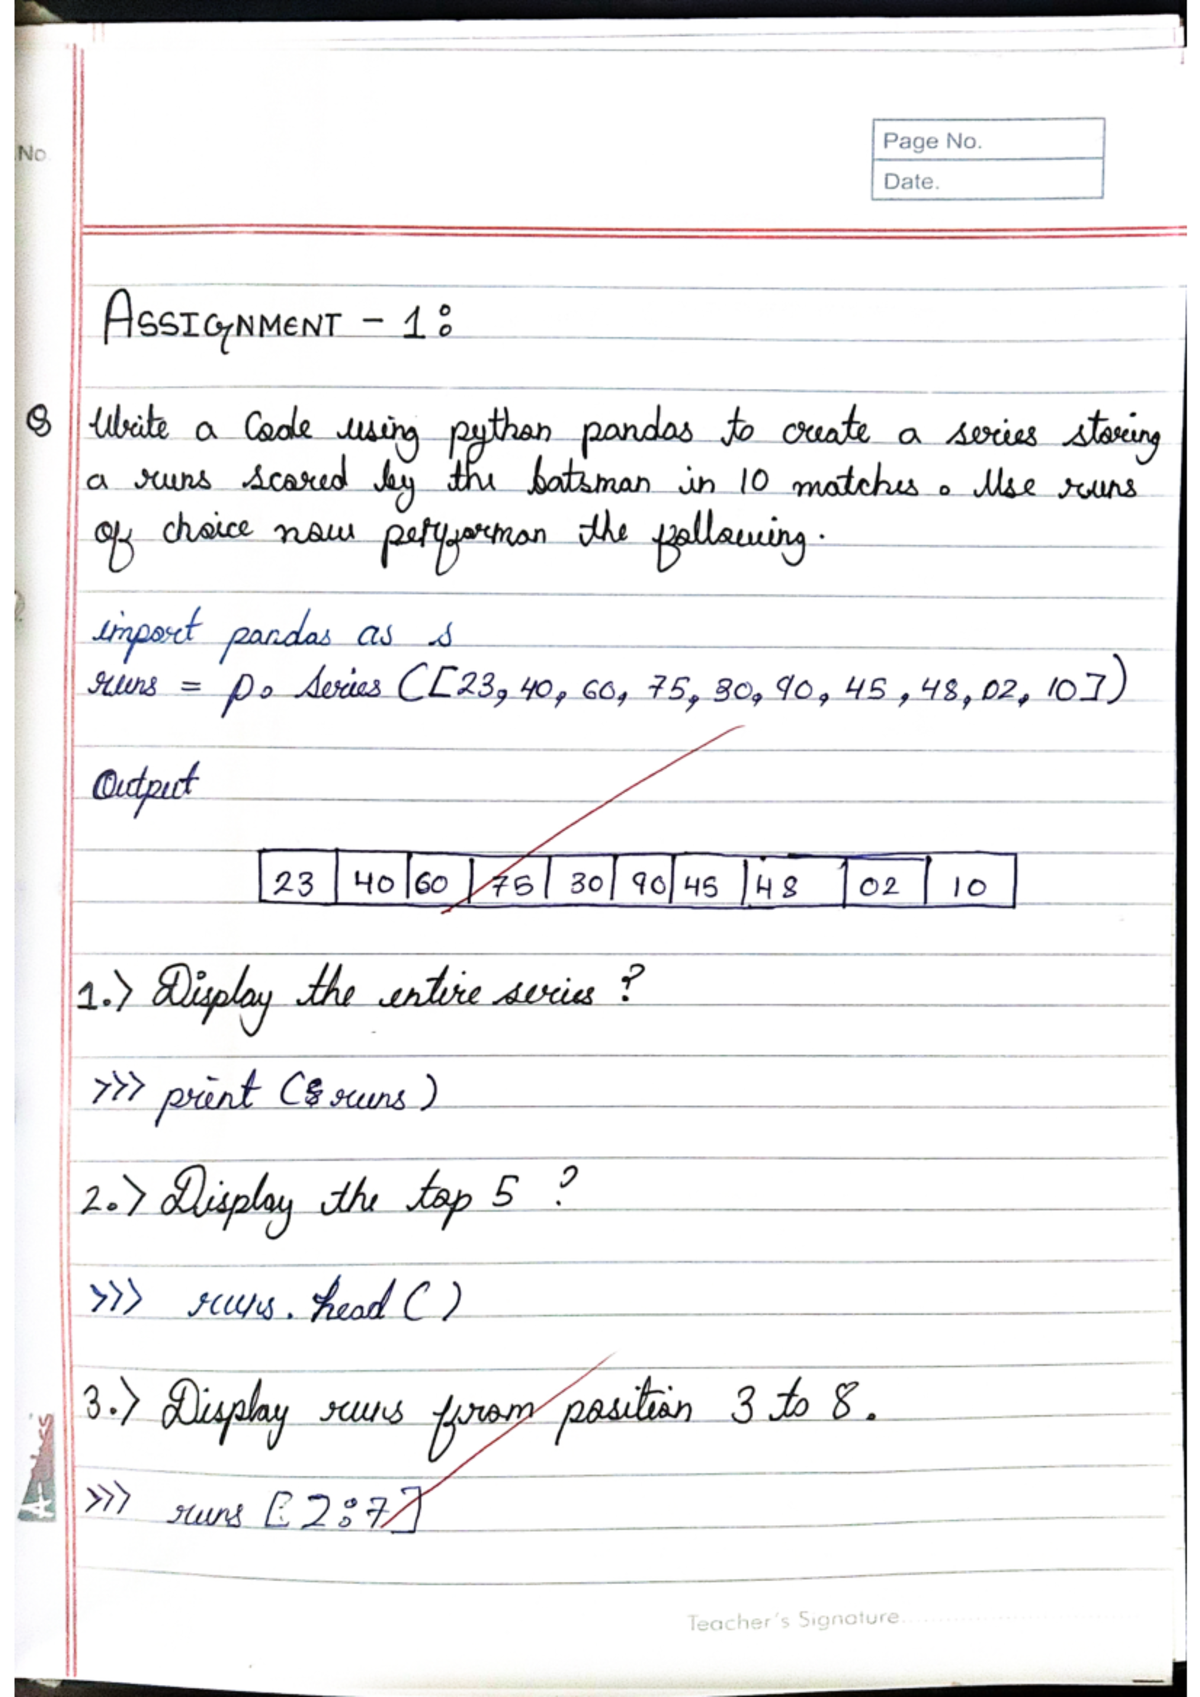 No.
Page No.
Date.
ASSIGNMENT - 1:
Q Write a Code using python pandas to create a series storing
a runs scored by the batsman in 10 matches. Use runs
of choice now performan the following.
import pandas as s
runs = p. Series ([23, 40, 60, 75, 30, 90, 45, 48, 02, 10])
Output
23 40 60 75 30 90 45 48 02 10
1.) Display the entire series ?
>>> print (runs)
2.) Display the top 5 ?
>>> runs. head ( )
3.) Display runs from position 3 to 8.
>>> runs [2:7]
Teacher's Signature